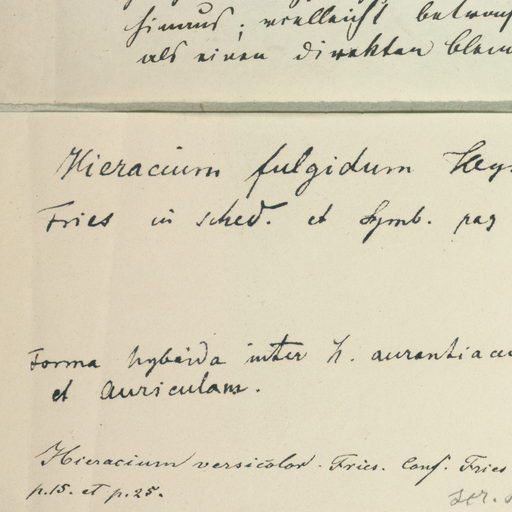 hinaus; vielleicht
als einen direkten
Hieracium fulgidum
Fries in sched. et Symb. pag
Forma hybrida inter H. aurantiacu
et Auriculam.
Hieracium versicolor. Fries. Conf. Fries
p.15. et p.25.